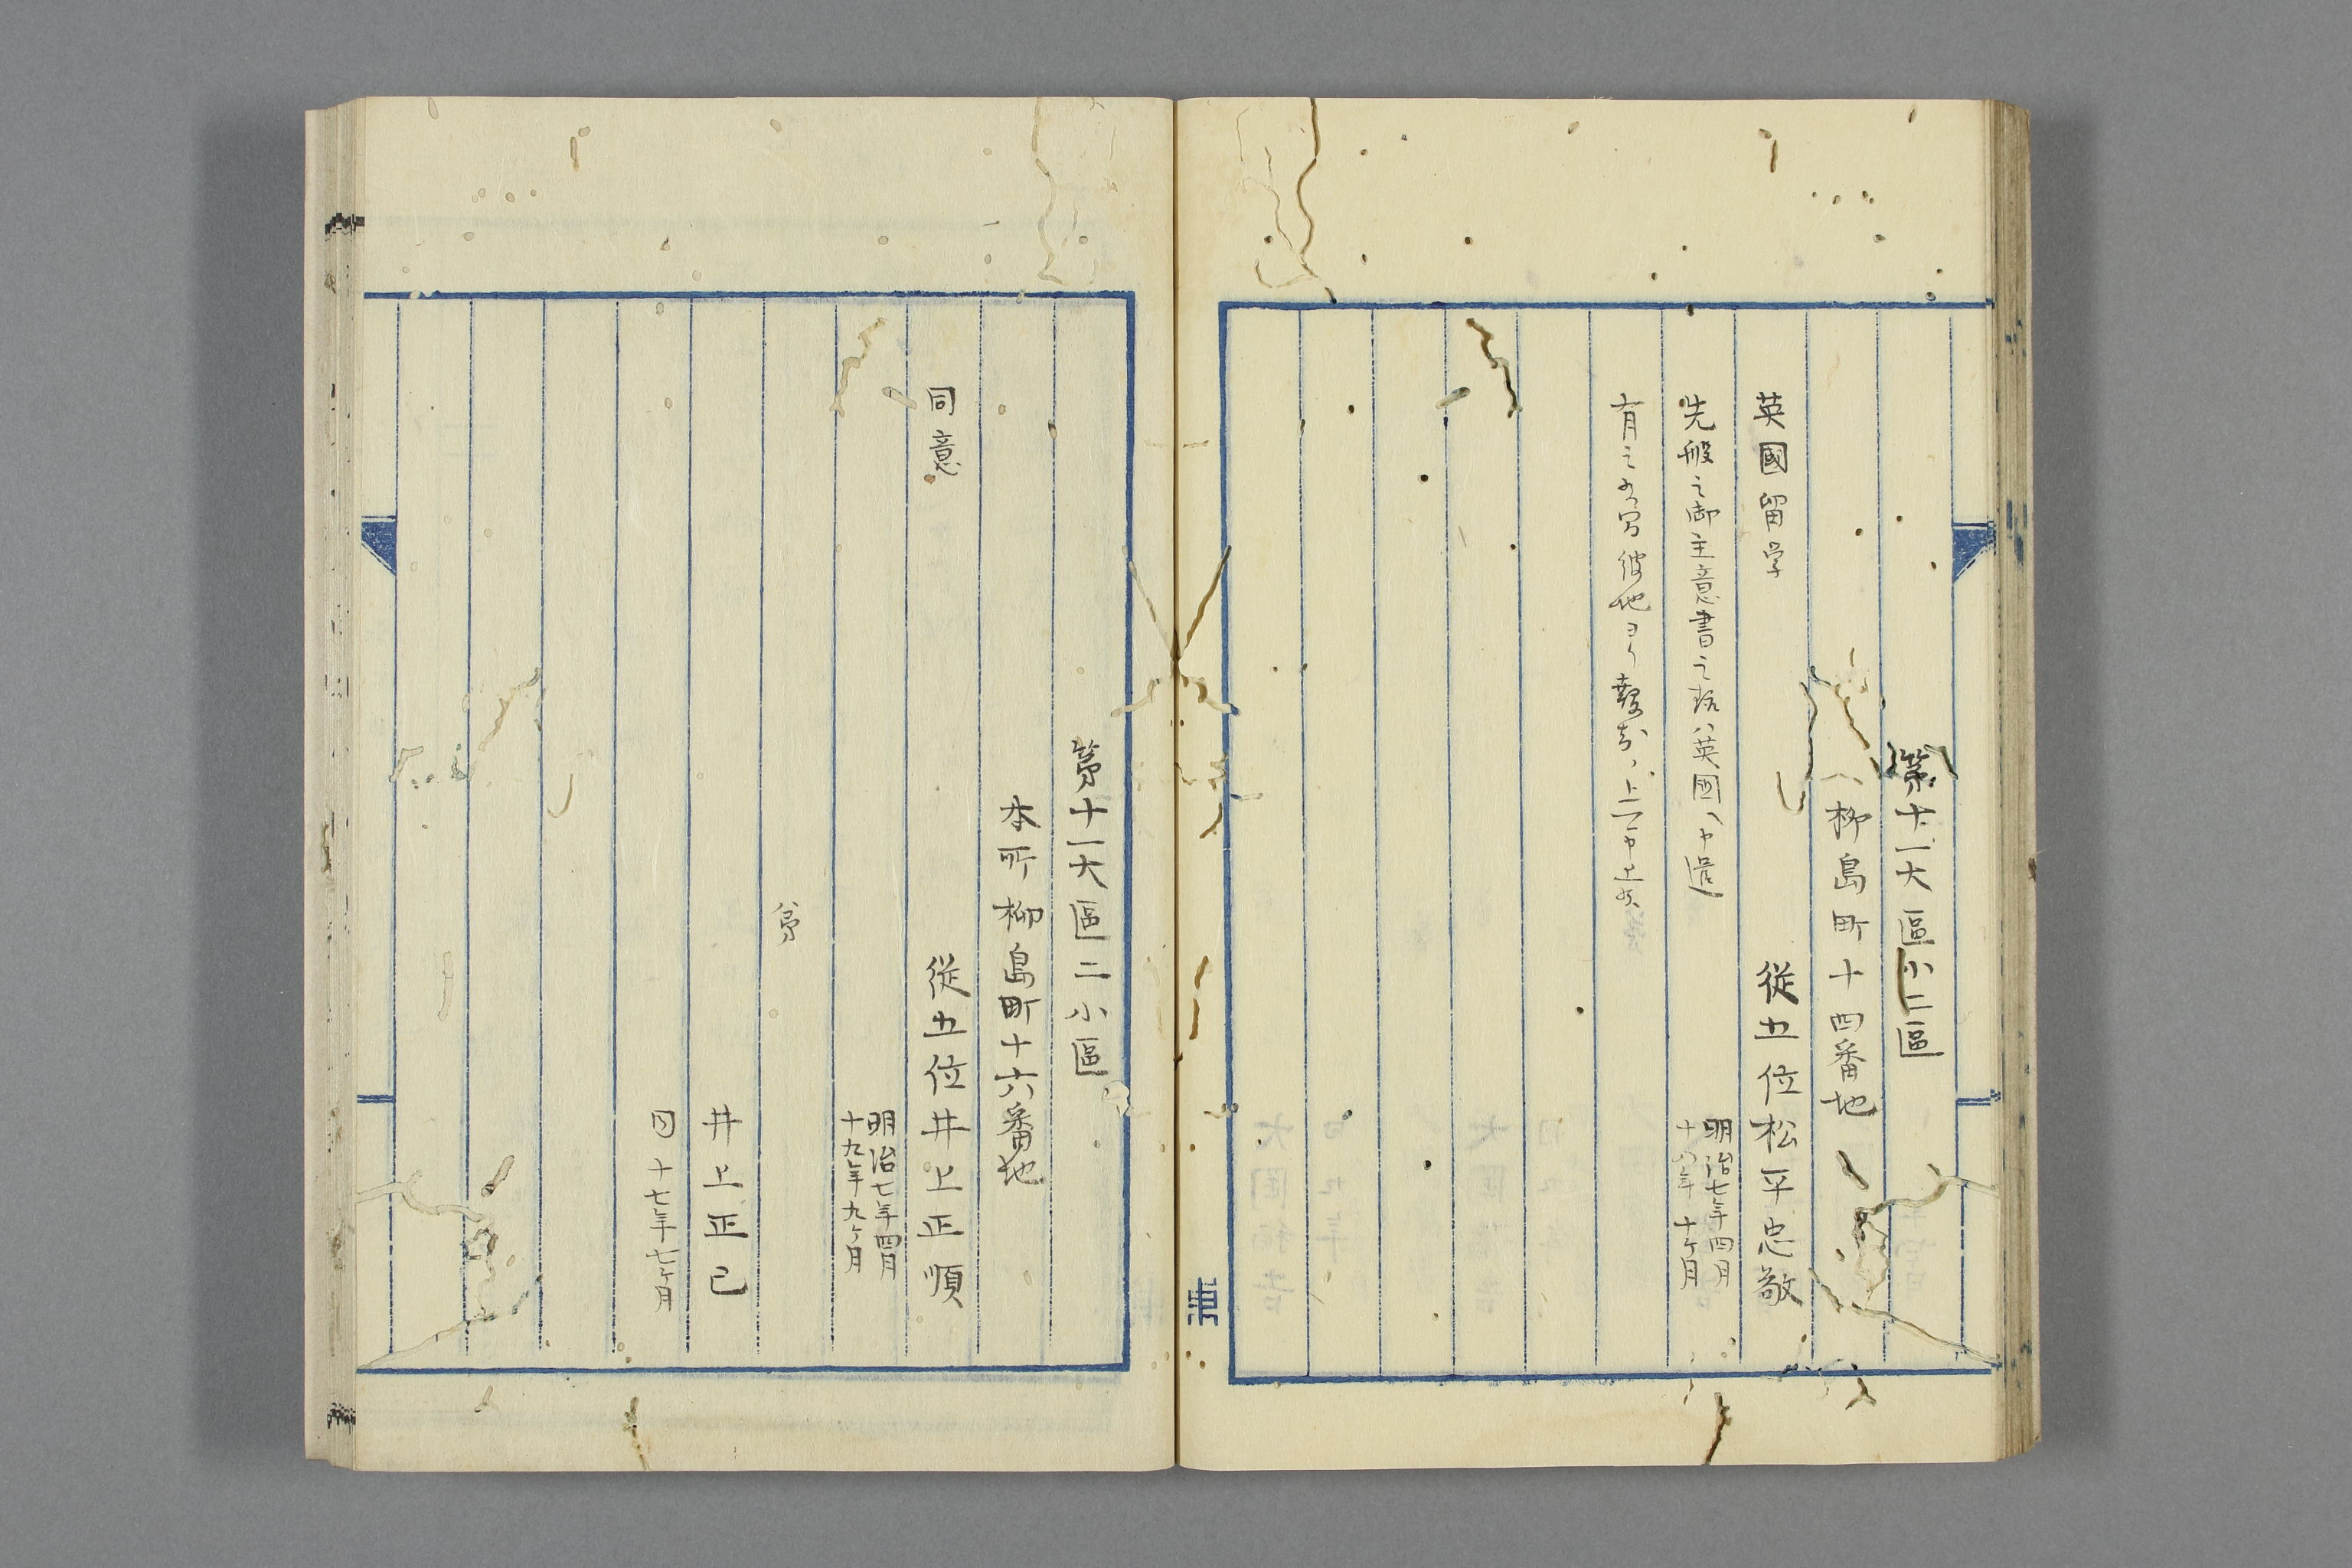 第十一大區小二區
柳島町十四番地
英國留学 從五位松平忠敬
明治七年四月
十八年十ヶ月
先般之御主意書之旨ハ英國ヘ申遣
有之候間彼地ヨリ報知ノ上ニテ申上候
第十一大區二小區
本所柳島町十六番地
同意 從五位井上正順
明治七年四月
十九年九ヶ月
弟
井上正己
同十七年七ヶ月